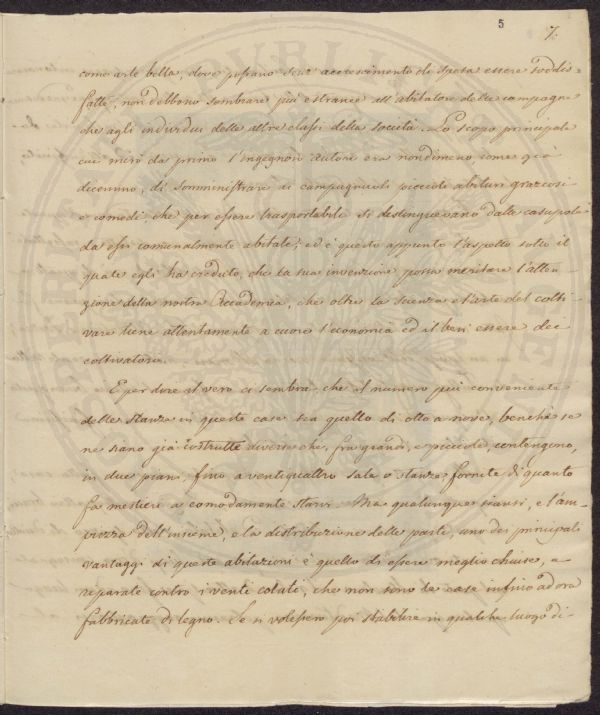 5 7.
come arte bella, dove possano senz' accrescimento di spesa essere soddis-
fatte, non debbono sembrare più estranee all'abitatore delle campagne
che agli individui delle altre classi della società. Lo scopo principale
cui mirò da prima l'ingegnoso autore era nondimeno, come già
dicemmo, di somministrare ai campagnuoli piccioli abituri graziosi
e comodi, che per essere trasportabili si distinguevano dalle casupole
da essi comunalmente abitate; ed è questo appunto l'aspetto sotto il
quale egli ha creduto, che la sua invenzione possa meritare l'atten-
zione della nostra Accademia, che oltre la scienza e l'arte del colti-
vare tiene attentamente a cuore l'economia ed il ben essere dei
coltivatori.
E per dire il vero ci sembra, che il numero più conveniente
delle stanze in queste case sia quello di otto a nove, benchè se
ne siano già costrutte diverse che, fra grandi, e picciole, contengono,
in due piani, fino a ventiquattro sale o stanze fornite di quanto
fa mestieri a comodamente starvi. Ma qualunque siansi, e l'am-
piezza dell'insieme, e la distribuzione delle parti, uno dei principali
vantaggi di queste abitazioni è quello di essere meglio chiuse, e
riparate contro i venti colati, che non sono le case infino ad ora
fabbricate di legno. Se si volessero poi stabilire in qualche luogo di-